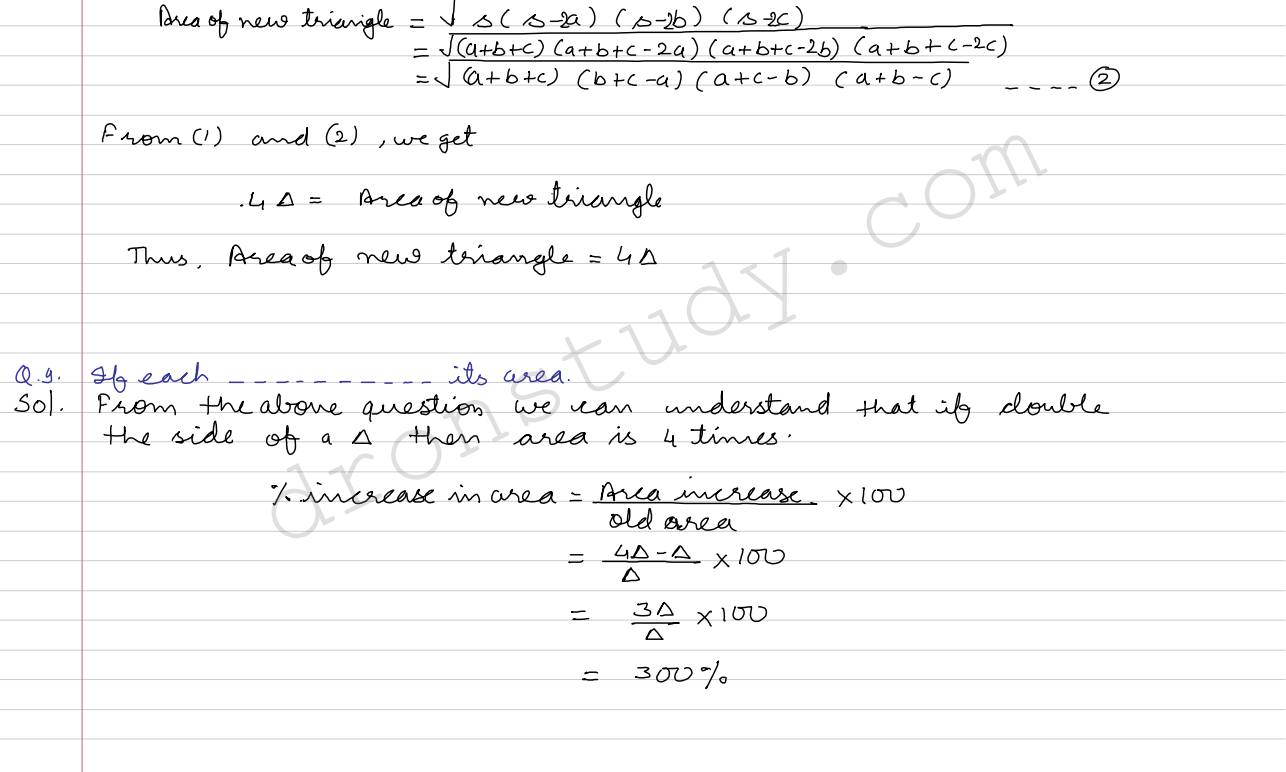 Area of new triangle = √s(s-2a) (s-2b) (s-2c)
= √(a+b+c) (a+b+c-2a) (a+b+c-2b) (a+b+c-2c)
= √(a+b+c) (b+c-a) (a+c-b) (a+b-c) ---- ②
From (1) and (2), we get
.4Δ = Area of new triangle
Thus, Area of new triangle = 4Δ
Q.9. If each ---------- its area.
Sol. From the above question we can understand that if double
the side of a Δ then area is 4 times.
% increase in area = Area increase / old area × 100
= 4Δ-Δ / Δ × 100
= 3Δ / Δ × 100
= 300%
dronstudy.com